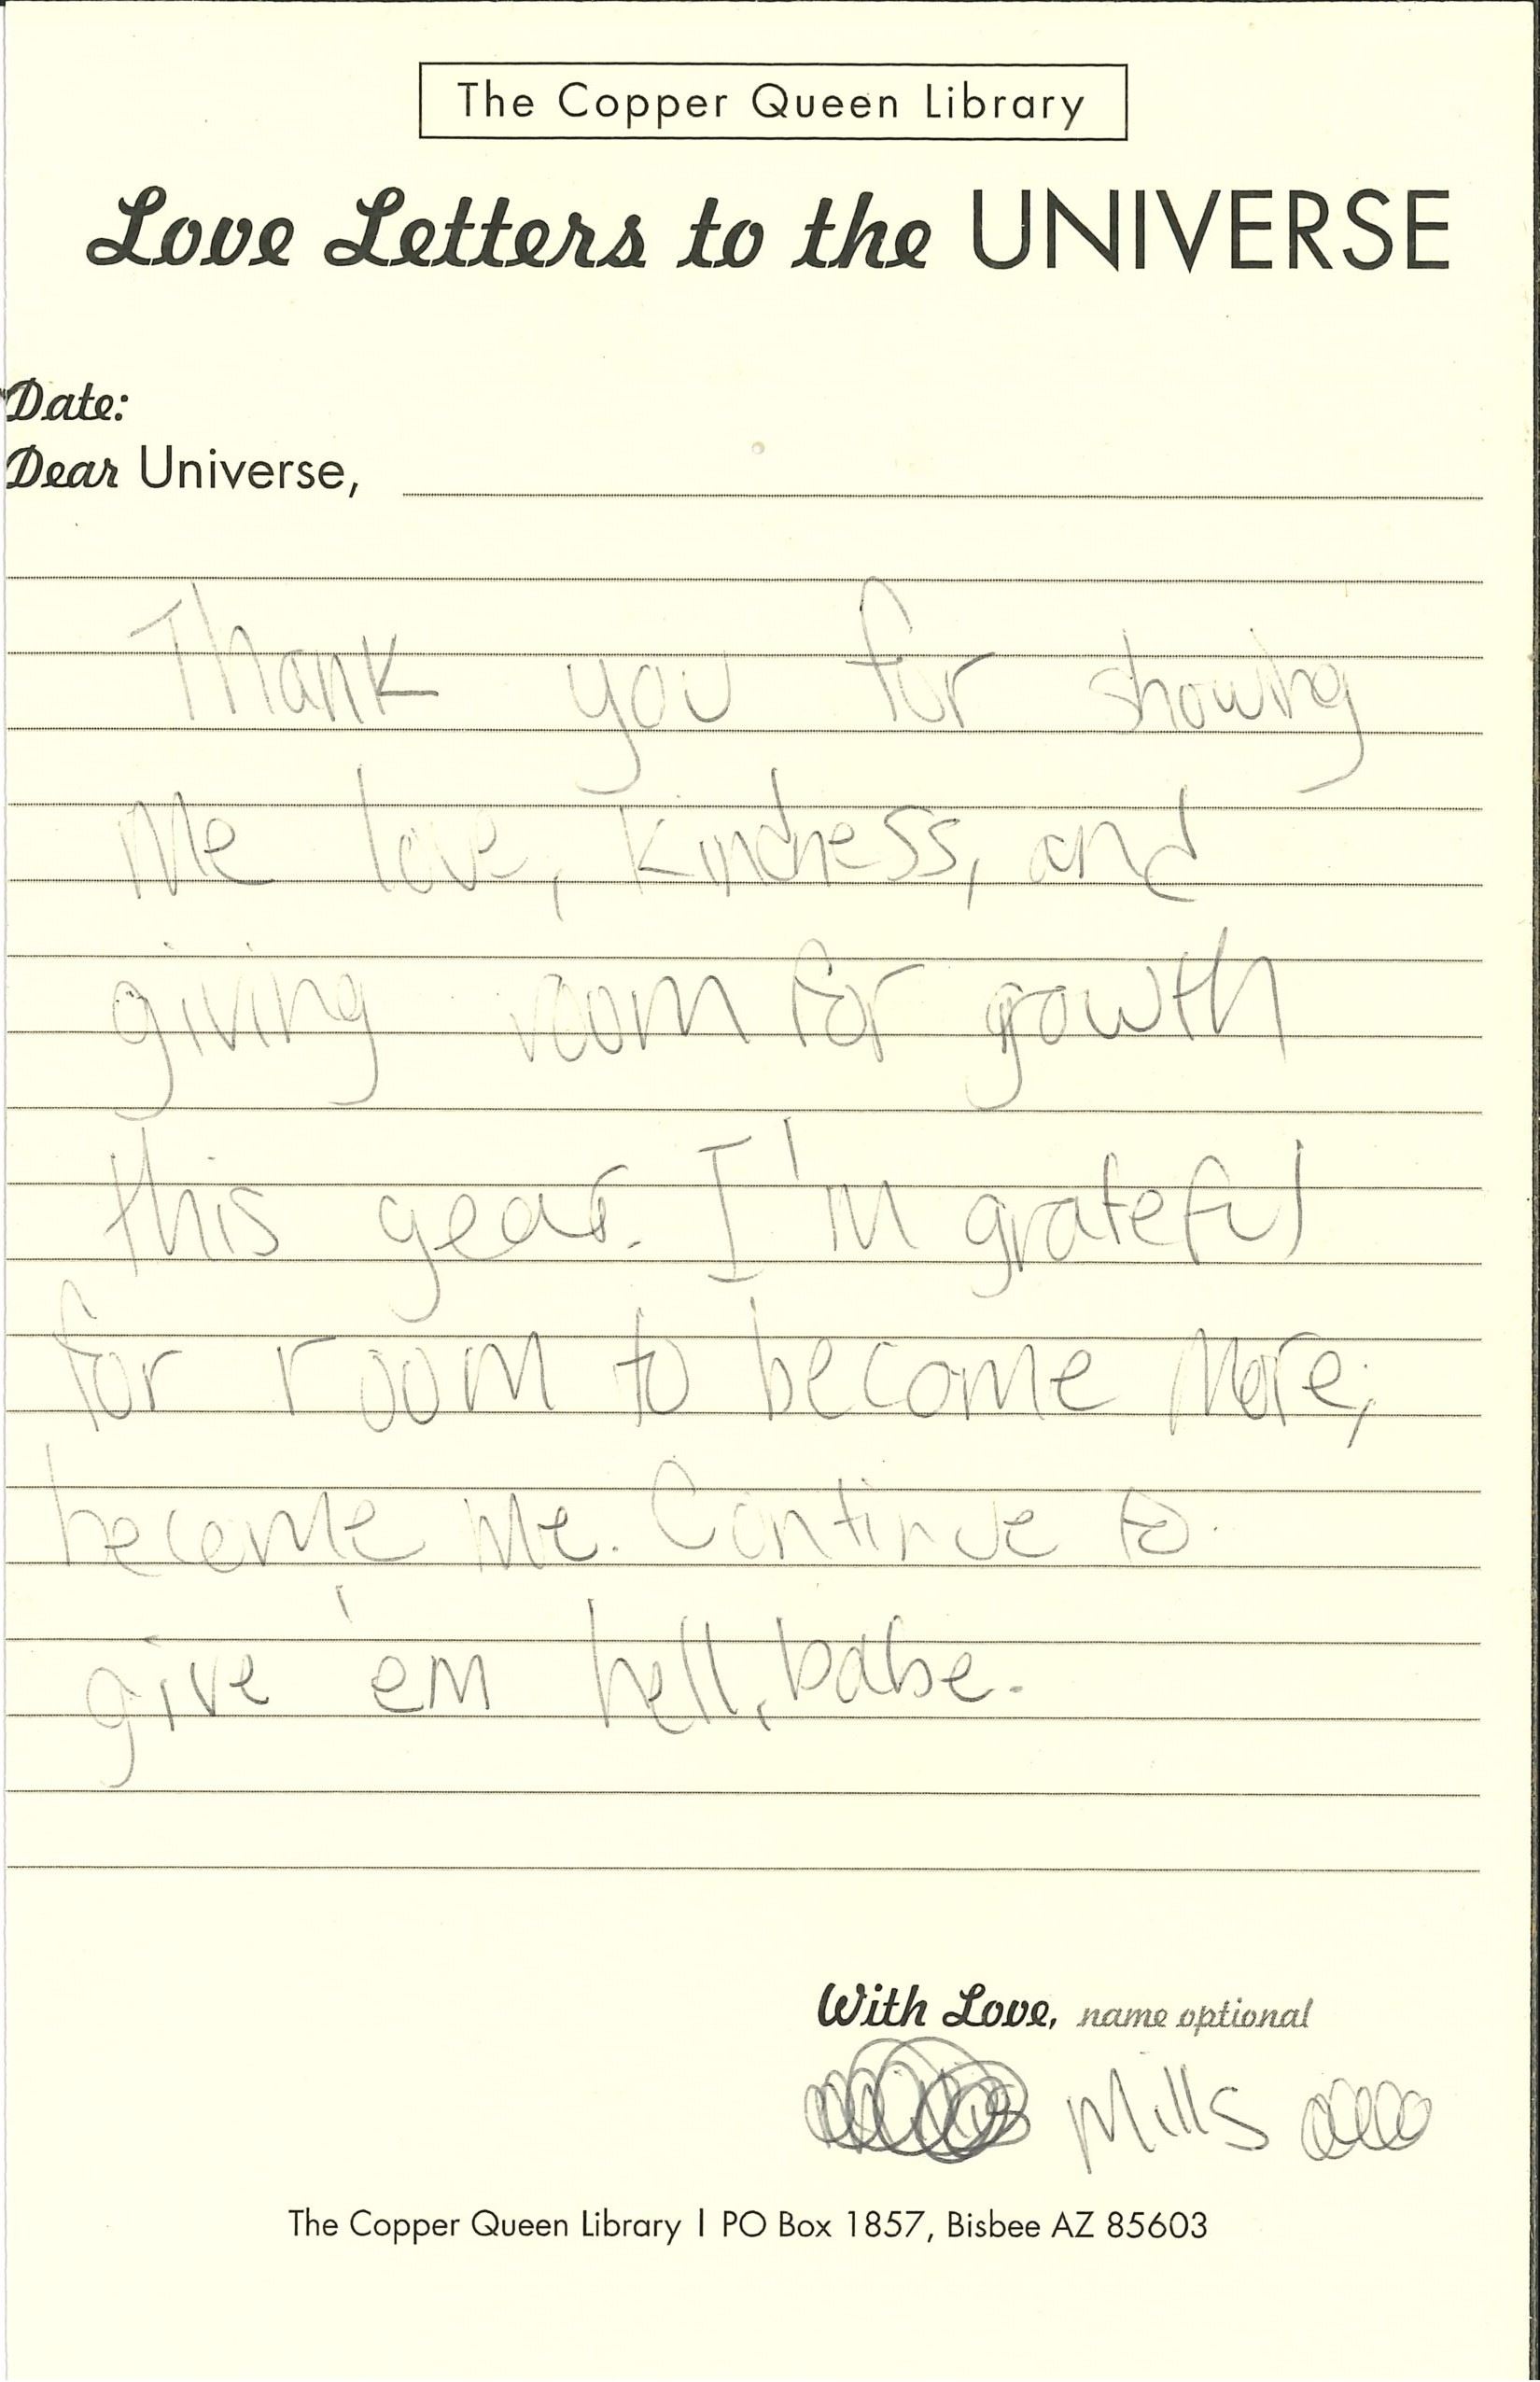 The Copper Queen Library
Love Letters to the UNIVERSE
Date:
Dear Universe,
Thank you for showing
Me love, kindness, and
giving room for growth
this year. I'm grateful
for room to become More,
become Me. Continue to
give 'em hell, babe.
With Love, name optional
Mills
The Copper Queen Library | PO Box 1857, Bisbee AZ 85603